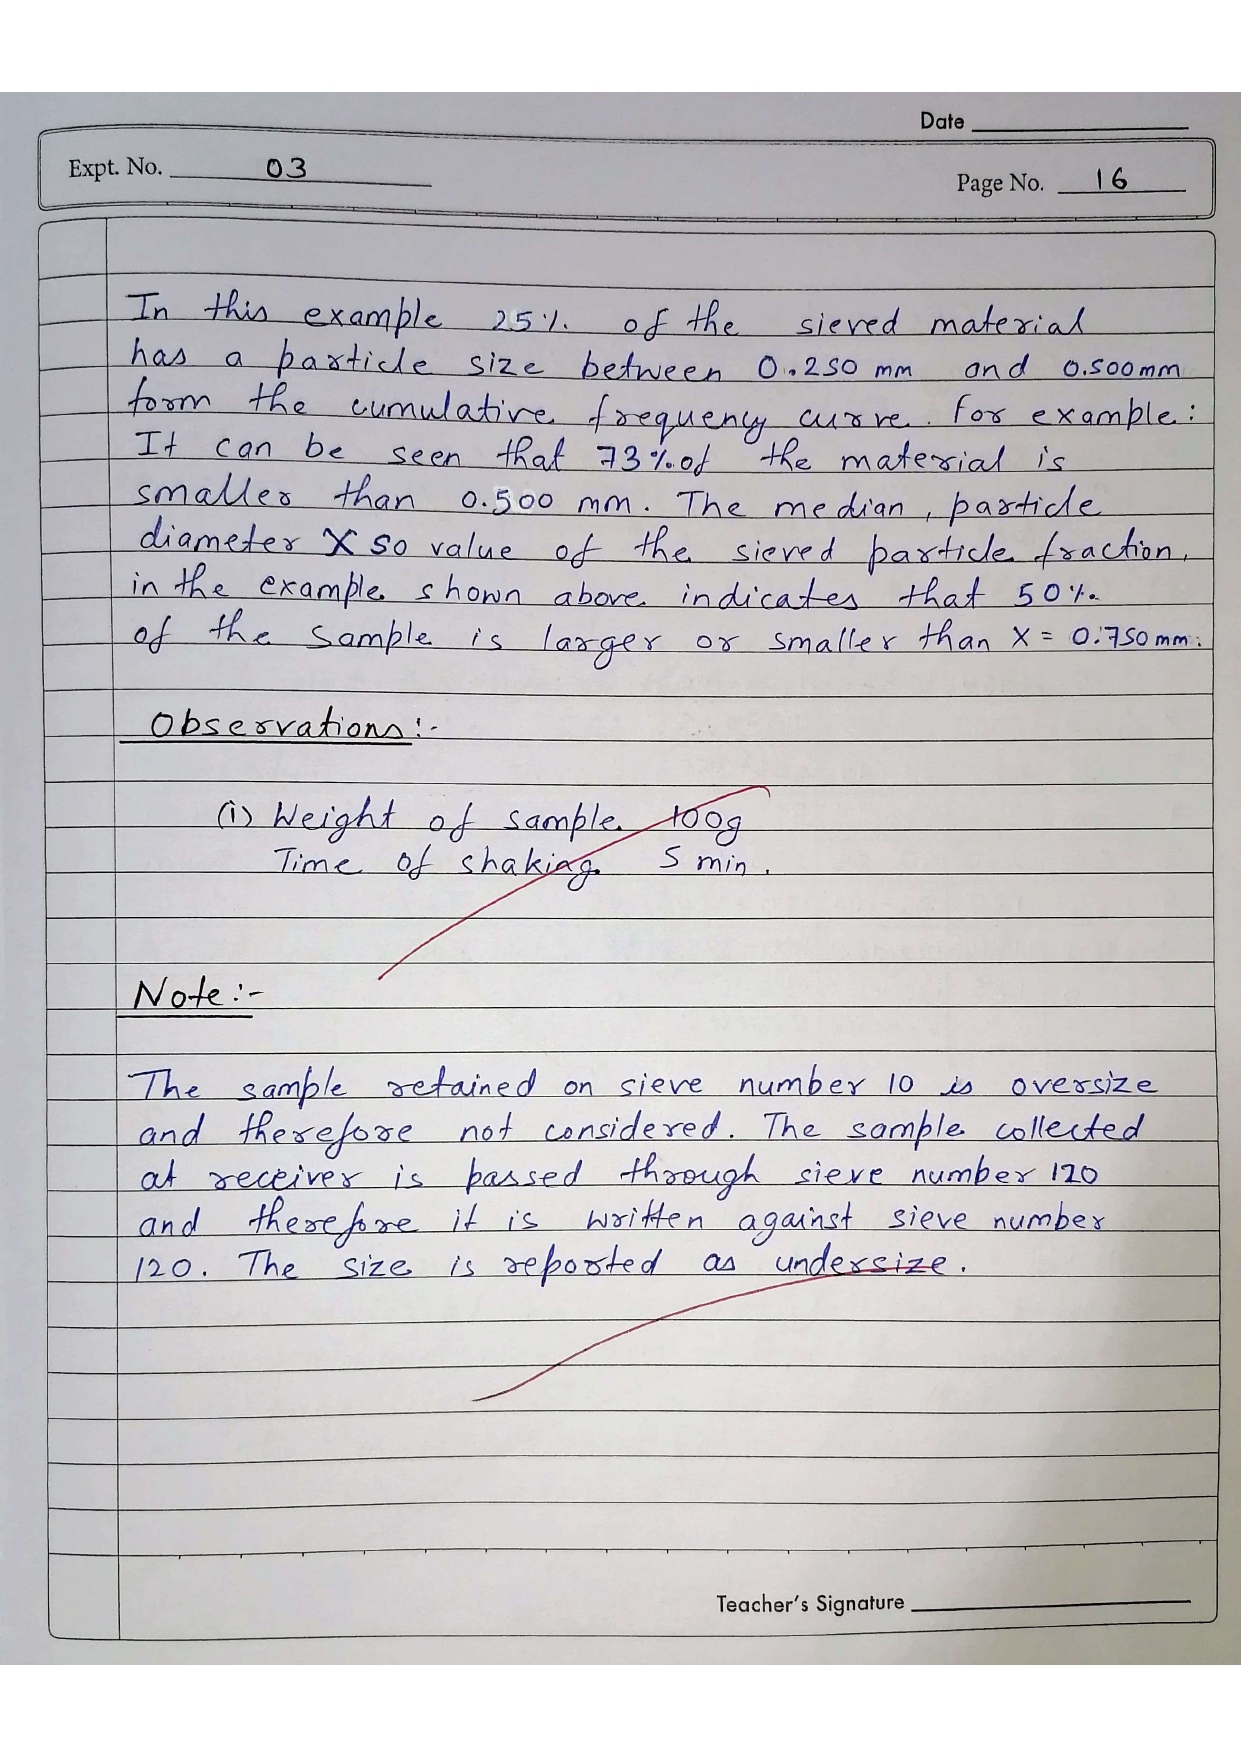 Date
Expt. No. 03
Page No. 16
In this example 25%. of the sieved material
has a particle size between 0.250 mm and 0.500mm
form the cumulative frequency curve. For example:
It can be seen that 73%.of the material is
smaller than 0.500 mm. The median, particle
diameter X 50 value of the sieved particle fraction,
in the example shown above indicates that 50%.
of the sample is larger or smaller than X = 0.750mm.
Observations:-
(i) Weight of sample 100g
Time of shaking 5 min.
Note:-
The sample retained on sieve number 10 is oversize
and therefore not considered. The sample collected
at receiver is passed through sieve number 120
and therefore it is written against sieve number
120. The size is reported as undersize.
Teacher's Signature